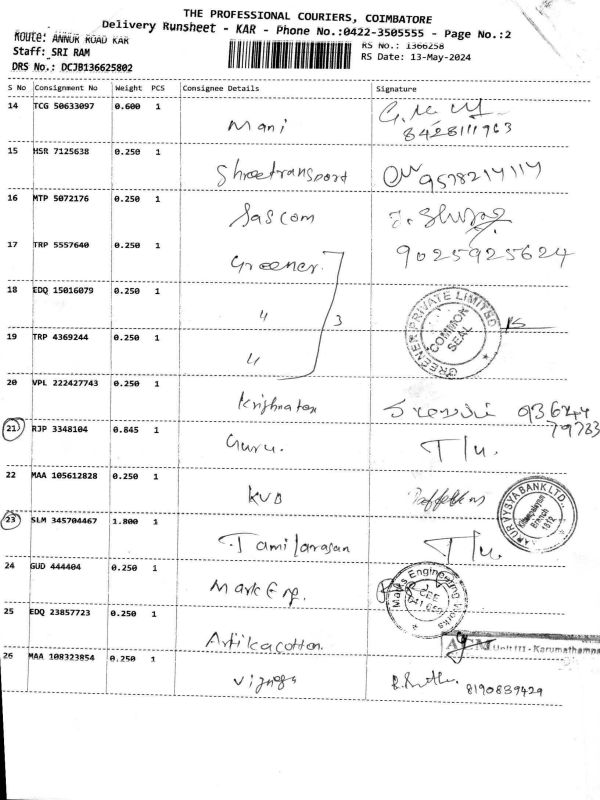 THE PROFESSIONAL COURIERS, COIMBATORE
Delivery Runsheet - KAR - Phone No.:0422-3505555 - Page No.:2
Route: ANNUR ROAD KAR
RS No.: 1366258
Staff: SRI RAM
RS Date: 13-May-2024
DRS No.: DCJB136625802
S No Consignment No Weight PCS Consignee Details Signature
14 TCG 50633097 0.600 1
Mani
8428111963
15 HSR 7125638 0.250 1
Shreetransport
9578214114
16 MTP 5072176 0.250 1
Sascom
17 TRP 5557640 0.250 1
Greener.
9025925624
18 EDQ 15016079 0.250 1
"
3
GREENER PRIVATE LIMITED
COMMON
SEAL
19 TRP 4369244 0.250 1
"
20 VPL 222427743 0.250 1
93624
79783
21 RJP 3348104 0.845 1
Guru.
T/u.
22 MAA 105612828 0.250 1
KVB
KARUR VYSYA BANK LTD.,
Branch
1812
23 SLM 345704467 1.800 1
Tamilarasan
T/u.
24 GUD 444404 0.250 1
Mark Eng.
Marks Engineering Works
CBE
641 659
25 EDQ 23857723 0.250 1
Artikacotton.
Unit III - Karumathampa
26 MAA 108323854 0.250 1
8190839429